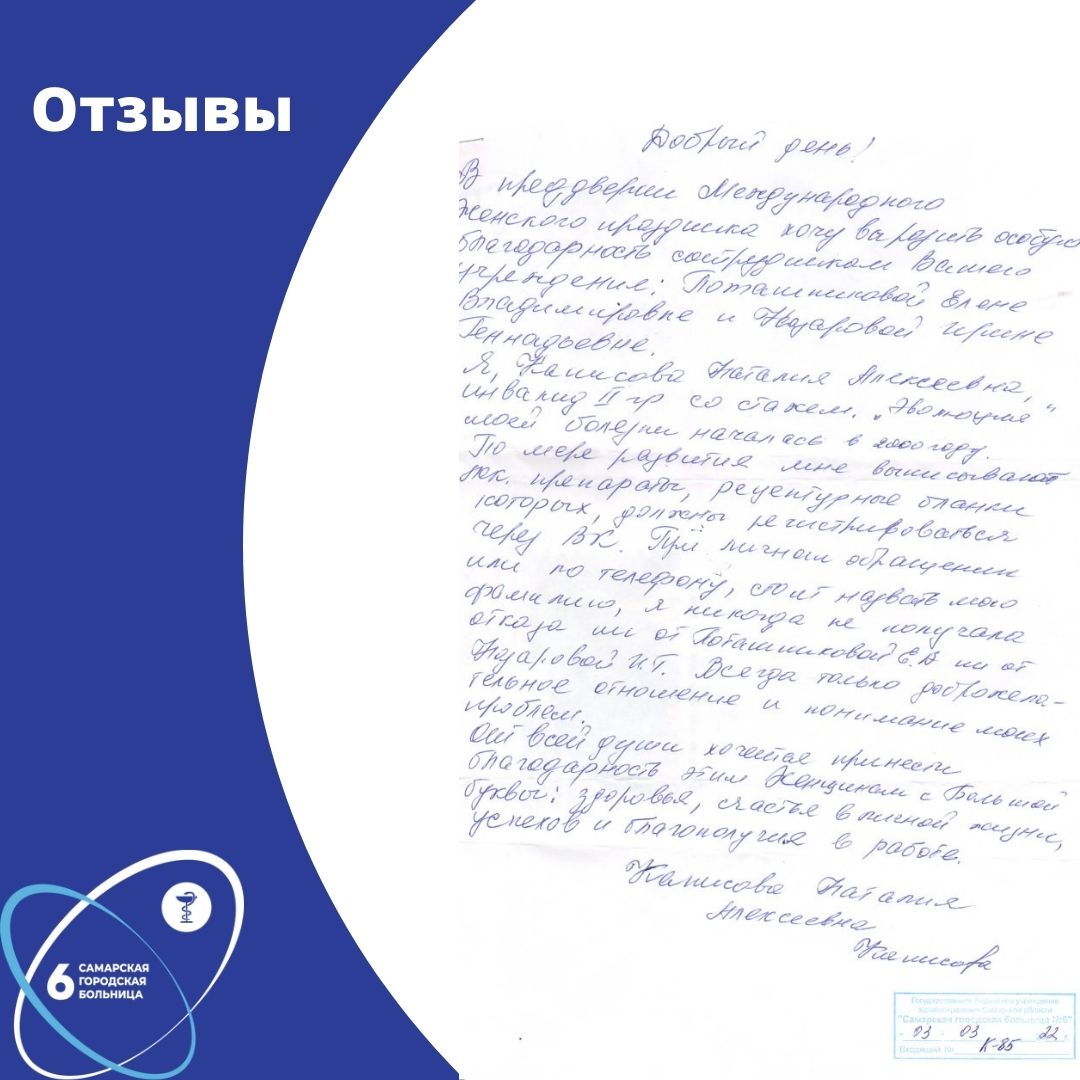 Отзывы
Добрый день!
В преддверии Международного
Женского праздника хочу выразить особую
благодарность сотрудникам Вашего
учреждения: Поташниковой Елене
Владимировне и Назаровой Ирине
Геннадьевне.
Я, Катисова Наталия Алексеевна,
инвалид II гр со стажем. „Эволюция"
моей болезни началась в 2000 году.
По мере развития мне выписывают
лек. препараты, рецептурные бланки
которых, должны регистрироваться
через ВК. При личном обращении
или по телефону, стоит назвать мою
фамилию, я никогда не получала
отказа ни от Поташниковой Е.В ни от
Назаровой И.Г. Всегда только доброжела-
тельное отношение и понимание моих
проблем.
От всей души хочется принести
благодарность этим Женщинам с Большой
буквы: здоровья, счастья в личной жизни,
успехов и благополучия в работе.
Наталия
Алексеевна
6 САМАРСКАЯ
ГОРОДСКАЯ
БОЛЬНИЦА
Государственное бюджетное учреждение
здравоохранения Самарской области
"Самарская городская больница №6"
03 03 22 г.
Входящий № К-85